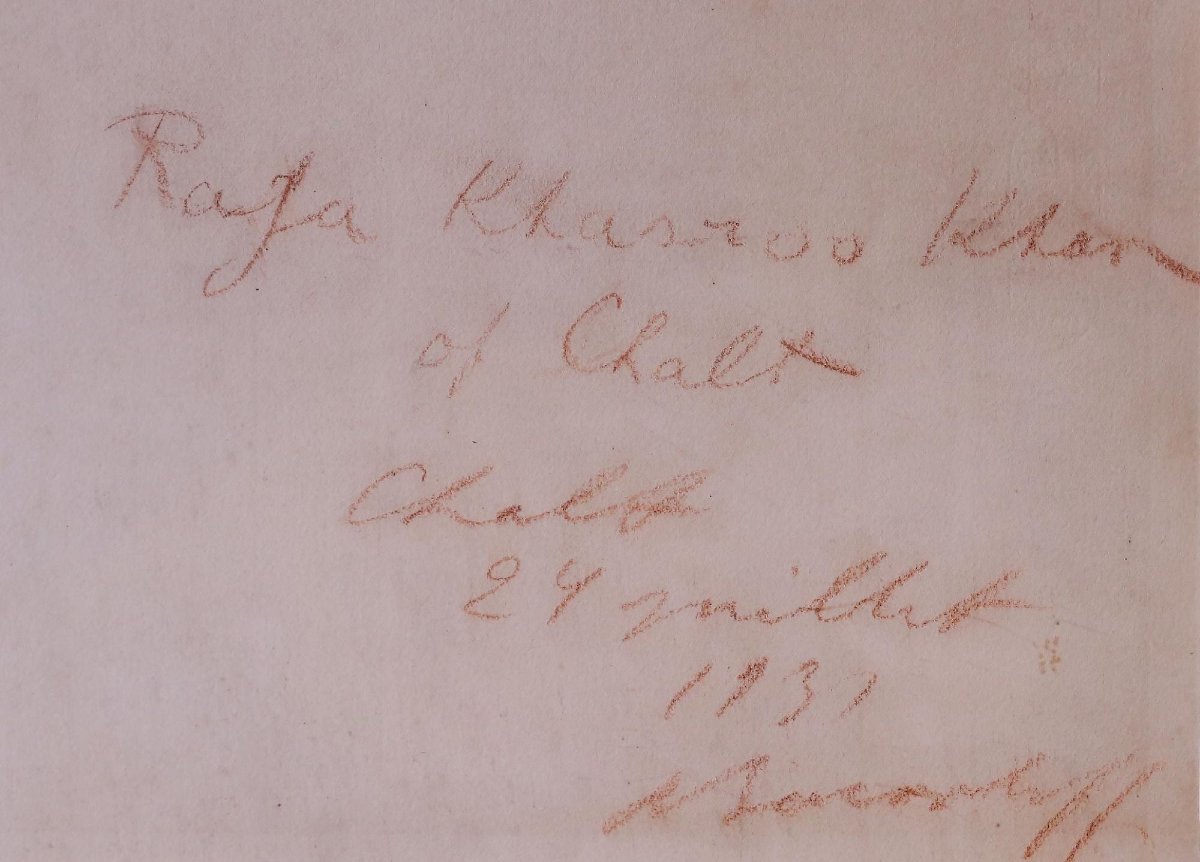 Raja Khasroo Khan
of Chalt
Chalt
24 juillet
1931
A Iacovleff